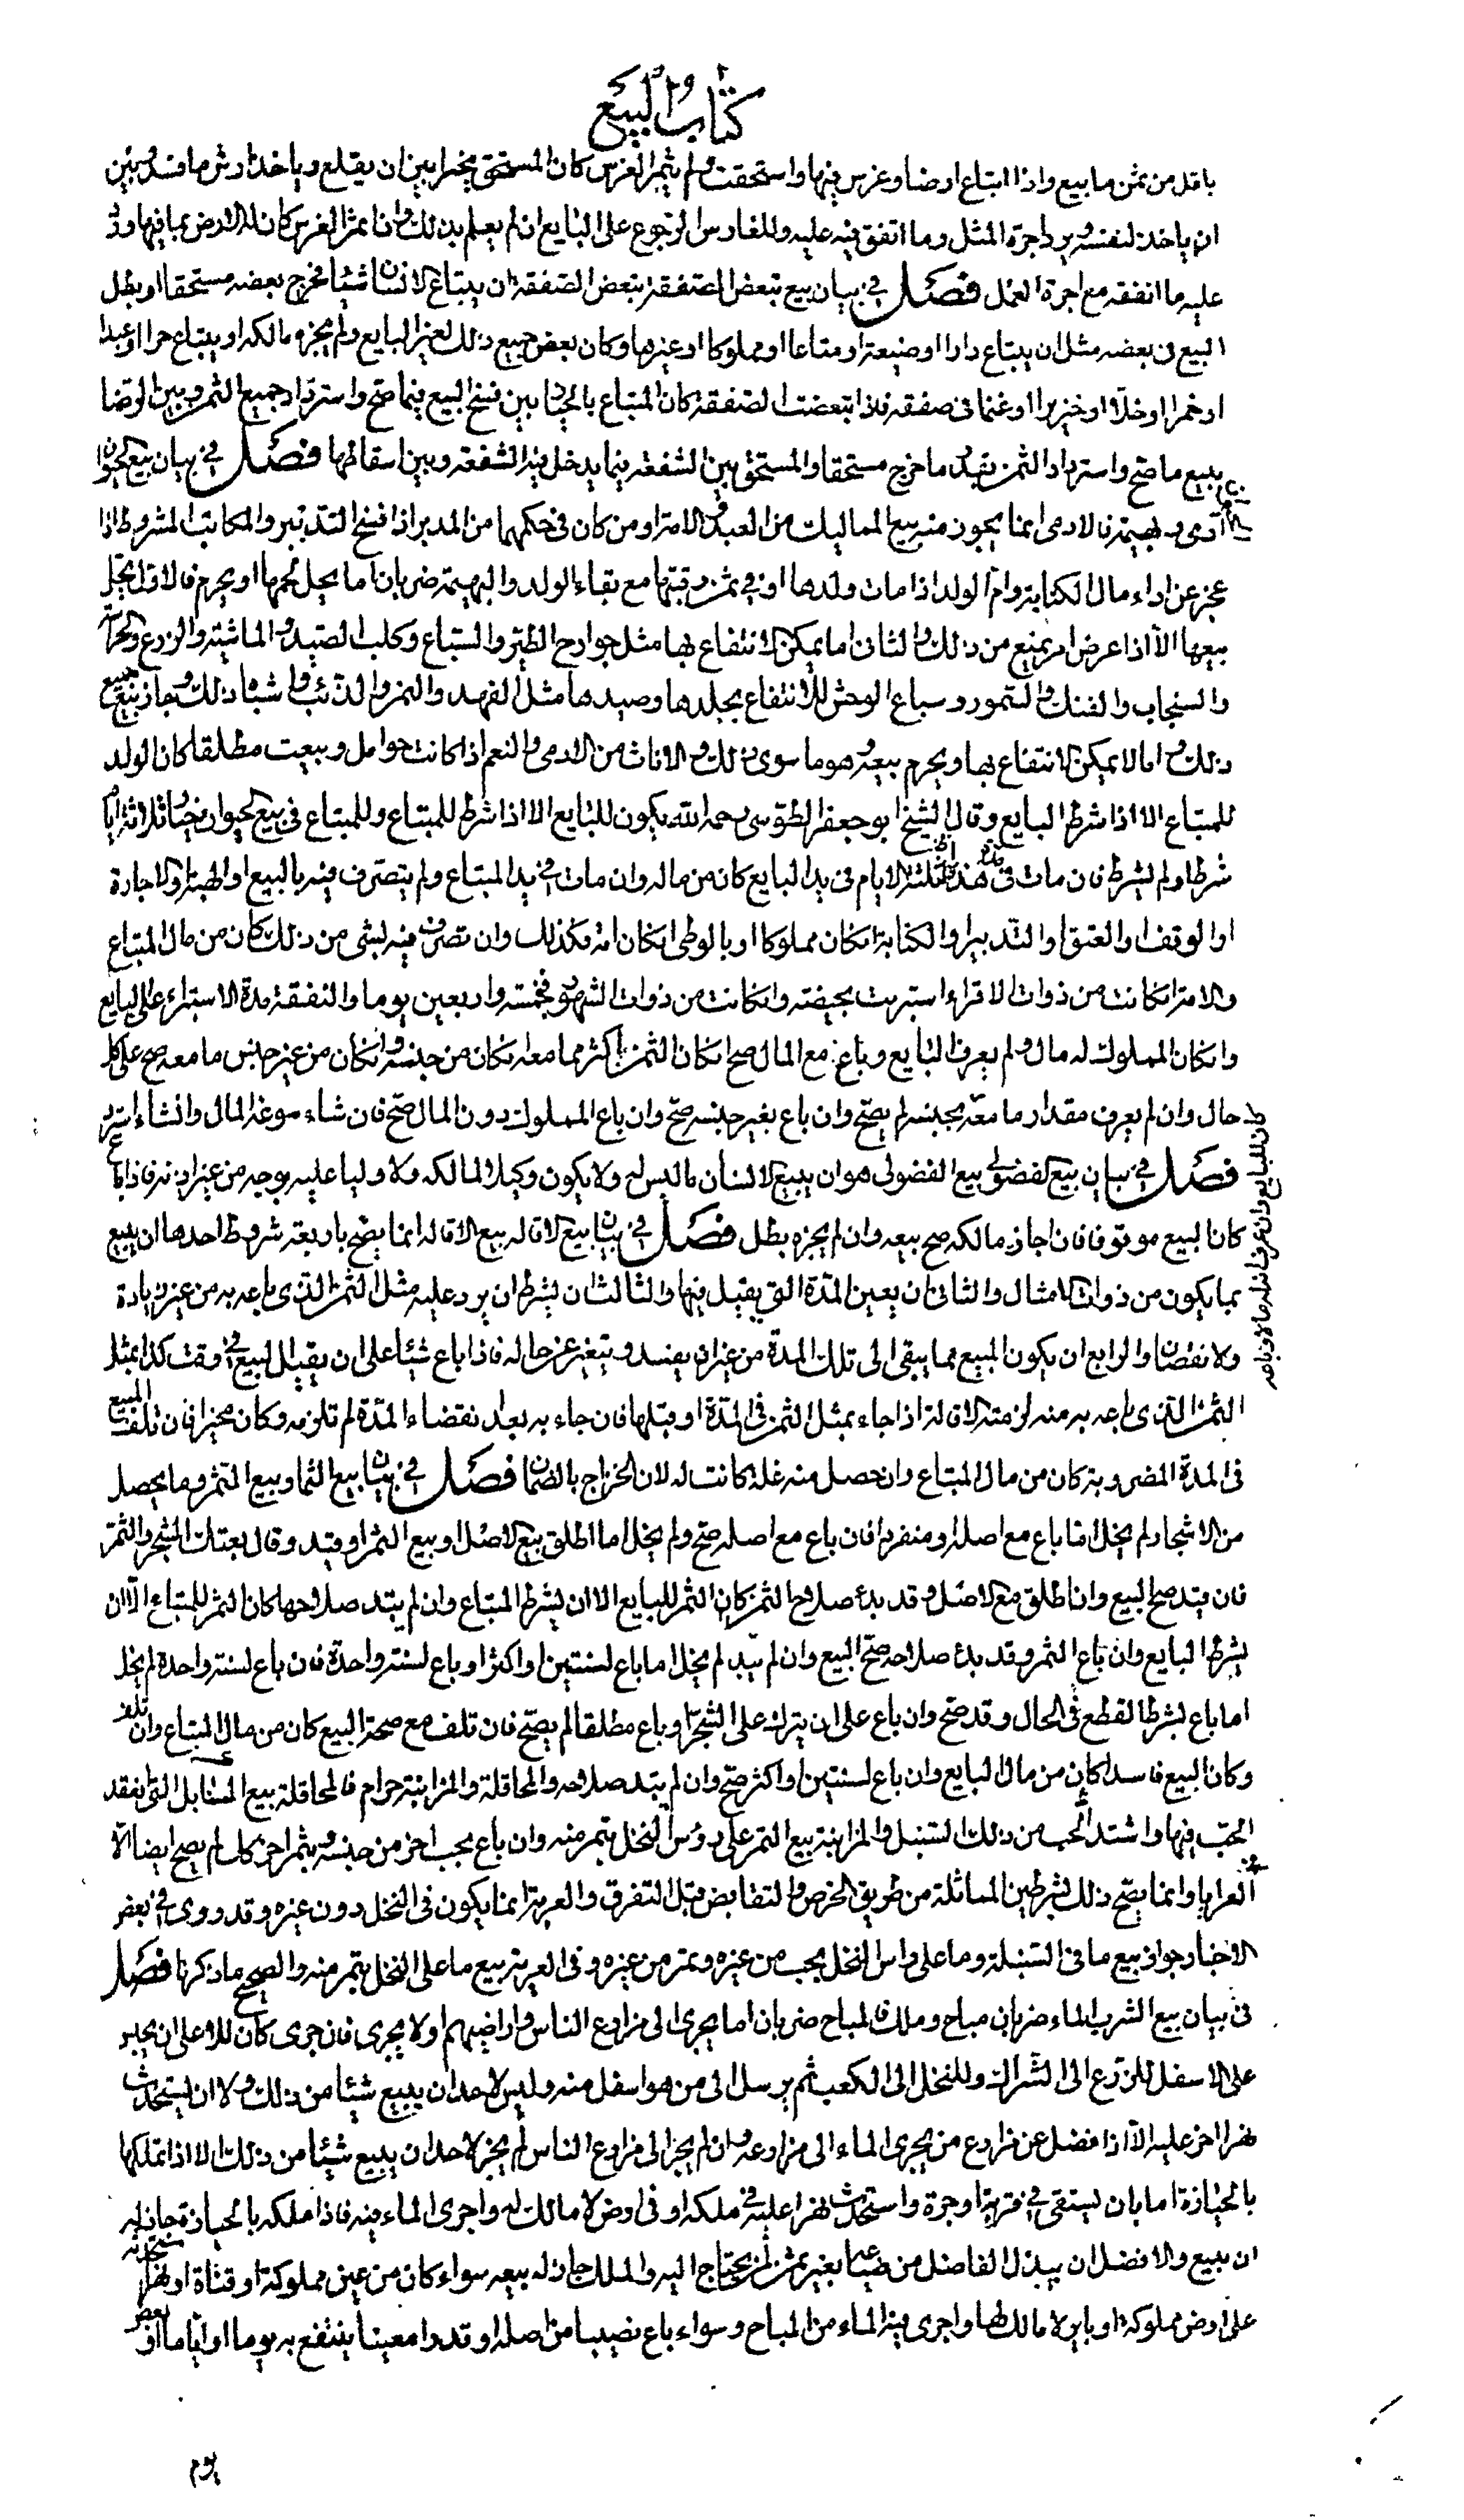 كتاب البيع
باقل من ثمن ما بيع واذا ابتاع ارضا وغرس فيها واستحقت ولم يثمر الغرس كان المستحق مخيرا بين ان يقلع وياخذ ارش ما فسد وبين
ان ياخذ لنفسه ويرد اجرة المثل وما انفق فيه عليه وللغارس الرجوع على البايع ان لم يعلم بذلك وان اثمر الغرس كان له الارض بما فيها ورد
عليه ما انفقه مع اجرة العمل فصل في بيان بيع تبعض الصفقة تبعض الصفقة ان يبتاع الانسان شيئا فخرج بعضه مستحقا او بطل
البيع في بعضه مثل ان يبتاع دارا او ضيعة او متاعا او مملوكا او غيرها وكان بعض جميع ذلك لغير البايع ولم يجزه مالكه او يبتاع حرا او عبدا
او خمرا او خلا او خنزيرا او غنما في صفقة فاذا تبعضت الصفقة كان المبتاع بالخيار بين فسخ البيع فيما صح واسترداد جميع الثمن وبين الرضا
ببيع ما صح واسترداد الثمن بقدر ما خرج مستحقا والمستحق بين الشفعة فيما يدخل فيه الشفعة وبين اسقاطها فصل في بيان بيع الحيوان
آدمي وبهيمة فالادمي انما يجوز منه بيع المماليك من العبد والامة او من كان في حكمهما من المدبر اذا فسخ التدبير والمكاتب المشروط اذا
عجز عن اداء مال الكتابة وام الولد اذا مات ولدها او في ثمن رقبتها مع بقاء الولد والبهيمة ضربان ما يحل لحمها او يحرم فالاول يحل
بيعها الا اذا عرض امر يمنع من ذلك والثاني اما يمكن الانتفاع بها مثل جوارح الطير والسباع وكلب الصيد والماشية والزرع والحراسة
والسنجاب والفنك والسمور وسباع الوحش للانتفاع بجلدها وصيدها مثل الفهد والنمر والذئب واشباه ذلك وجاز بيع جميع
ذلك واما لا يمكن الانتفاع بها ويحرم بيعه وهو ما سوى ذلك والاناث من الادمي والنعم اذا كانت حوامل وبيعت مطلقا كان الولد
للمبتاع الا اذا شرط البايع وقال الشيخ ابو جعفر الطوسي رحمه الله يكون للبايع الا اذا شرط للمبتاع وللمبتاع في بيع الحيوان خيار ثلاثة ايام
شرط او لم يشرط فان مات في مدة هذه الثلثة الايام في يد البايع كان من ماله وان مات في يد المبتاع ولم يتصرف فيه بالبيع او الهبة او الاجارة
او الوقف او العتق او التدبير او الكتابة ان كان مملوكا او بالوطي ان كان امة فكذلك وان تصرف فيه بشي من ذلك كان من مال المبتاع
والامة ان كانت من ذوات الاقراء استبرئت بحيضة وان كانت من ذوات الشهور فخمسة واربعين يوما والنفقة مدة الاستبراء على البايع
وان كان المملوك له مال ولم يعرف البايع وباع مع المال صح ان كان الثمن اكثر مما معه ان كان من جنسه وان كان من غير جنس ما معه صح على كل
حال وان لم يعرف مقدار ما معه بجنسه لم يصح وان باع بغير جنسه صح وان باع المملوك دون المال صح فان شاء سوغه المال وان شاء استرد
فصل في بيان بيع الفضولي بيع الفضولي هو ان يبيع الانسان ما ليس له ولا يكون وكيلا لمالكه ولا وليا عليه بوجه من غير اذنه فاذا باع
كان البيع موقوفا فان اجازه مالكه صح بيعه وان لم يجزه بطل فصل في بيان بيع الاقالة بيع الاقالة انما يصح باربعة شروط احدها ان يبيع
بما يكون من ذوات الامثال والثاني ان يعين المدة التي يقيل فيها والثالث ان يشرط ان يرد عليه مثل الثمن الذي باعه به من غير زيادة
ولا نقصان والرابع ان يكون المبيع مما يبقى الى تلك المدة من غير ان يفسد ويتغير عن حاله فاذا باع شيئا على ان يقيل البيع في وقت كذا بمثل
الثمن الذي باعه به منه لزمته الاقالة اذا جاء بمثل الثمن في المدة او قبلها فان جاء به بعد انقضاء المدة لم تلزمه وكان مخيرا فان تلف المبيع
في المدة المضروبة كان من مال المبتاع وان حصل منه غلة كانت له لان الخراج بالضمان فصل في بيان بيع الثمار بيع الثمر وما يحصل
من الاشجار لم يخل اما باع مع اصله او منفردا فان باع مع اصله صح ولم يخل اما اطلق بيع الاصل او بيع الثمر او قيد وقال بعتك الشجر والثمر
فان قيد صح البيع وان اطلق مع الاصل وقد بدء صلاح الثمر كان الثمر للبايع الا ان يشرط المبتاع وان لم يبد صلاحها كان الثمر للمبتاع الا ان
يشرط البايع وان باع الثمر وقد بدء صلاحه صح البيع وان لم يبد لم يخل اما باع لسنتين او اكثر او باع لسنة واحدة فان باع لسنة واحدة لم يخل
اما باع بشرط القطع في الحال وقد صح وان باع على ان يترك على الشجر او باع مطلقا لم يصح فان تلف مع صحة البيع كان من مال المبتاع وان تلف
وكان البيع فاسدا كان من مال البايع وان باع لسنتين او اكثر صح وان لم يبد صلاحه والمحاقلة والمزابنة حرام فالمحاقلة بيع السنابل التي انعقد
الحب فيها واشتد الحب من ذلك السنبل والمزابنة بيع التمر على رؤس النخل بتمر منه وان باع بحب اخر من جنسه وبتمر اخر كان لم يصح ايضا الا
العرايا وانما يصح ذلك بشرطين المماثلة من طريق الخرص والتقابض قبل التفرق والعرية انما يكون في النخل دون غيره وقد روى في بعض
الاخبار جواز بيع ما في السنبلة وما على راس النخل بحب من غيره وتمر من غيره وفي العرية بيع ما على النخل بتمر منه والصحيح ما ذكرنا فصل
في بيان بيع الشرب الماء ضربان مباح وملك فالمباح ضربان اما يجري الى مزارع الناس واراضيهم او لا يجري فان جرى كان للاعلى ان يحبس
على الاسفل للزرع الى الشراك وللنخل الى الكعب ثم يرسل الى من هو اسفل منه وليس لاحد ان يبيع شيئا من ذلك ولا ان يستحدث
نهرا اخر عليه الا اذا فضل عن مزارع من يجري الماء الى مزارعه وان لم يجر الى مزارع الناس لم يجز لاحد ان يبيع شيئا من ذلك الا اذا تملكها
بالحيازة اما بان يستقى في قربة او جرة واستحدث نهرا عليه في ملكه او في ارض لا مالك له واجرى الماء فيه فاذا ملكه بالحيازة جاز له
ان يبيع والافضل ان يبذل الفاضل من ضياعه بغير ثمن لمن يحتاج اليه والملك جاز له بيعه سواء كان من عين مملوكة او قناة او نهر استخرجه
على ارض مملوكة او باير لا مالك لها واجرى فيه الماء من المباح وسواء باع نصيبا من اصله او قدرا معينا ينتفع به يوما او اياما او بعض